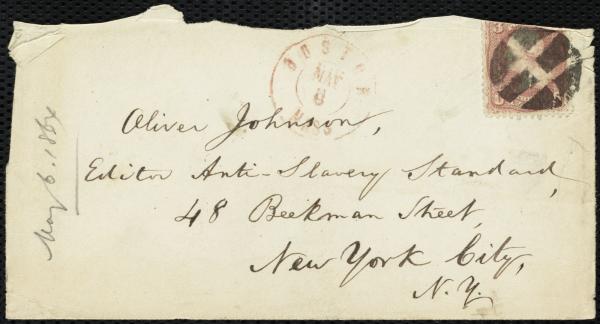 BOSTON
MAY
6
MASS
Oliver Johnson,
Editor Anti-Slavery Standard,
48 Beekman Street,
New York City,
N.Y.
May 6. 1864